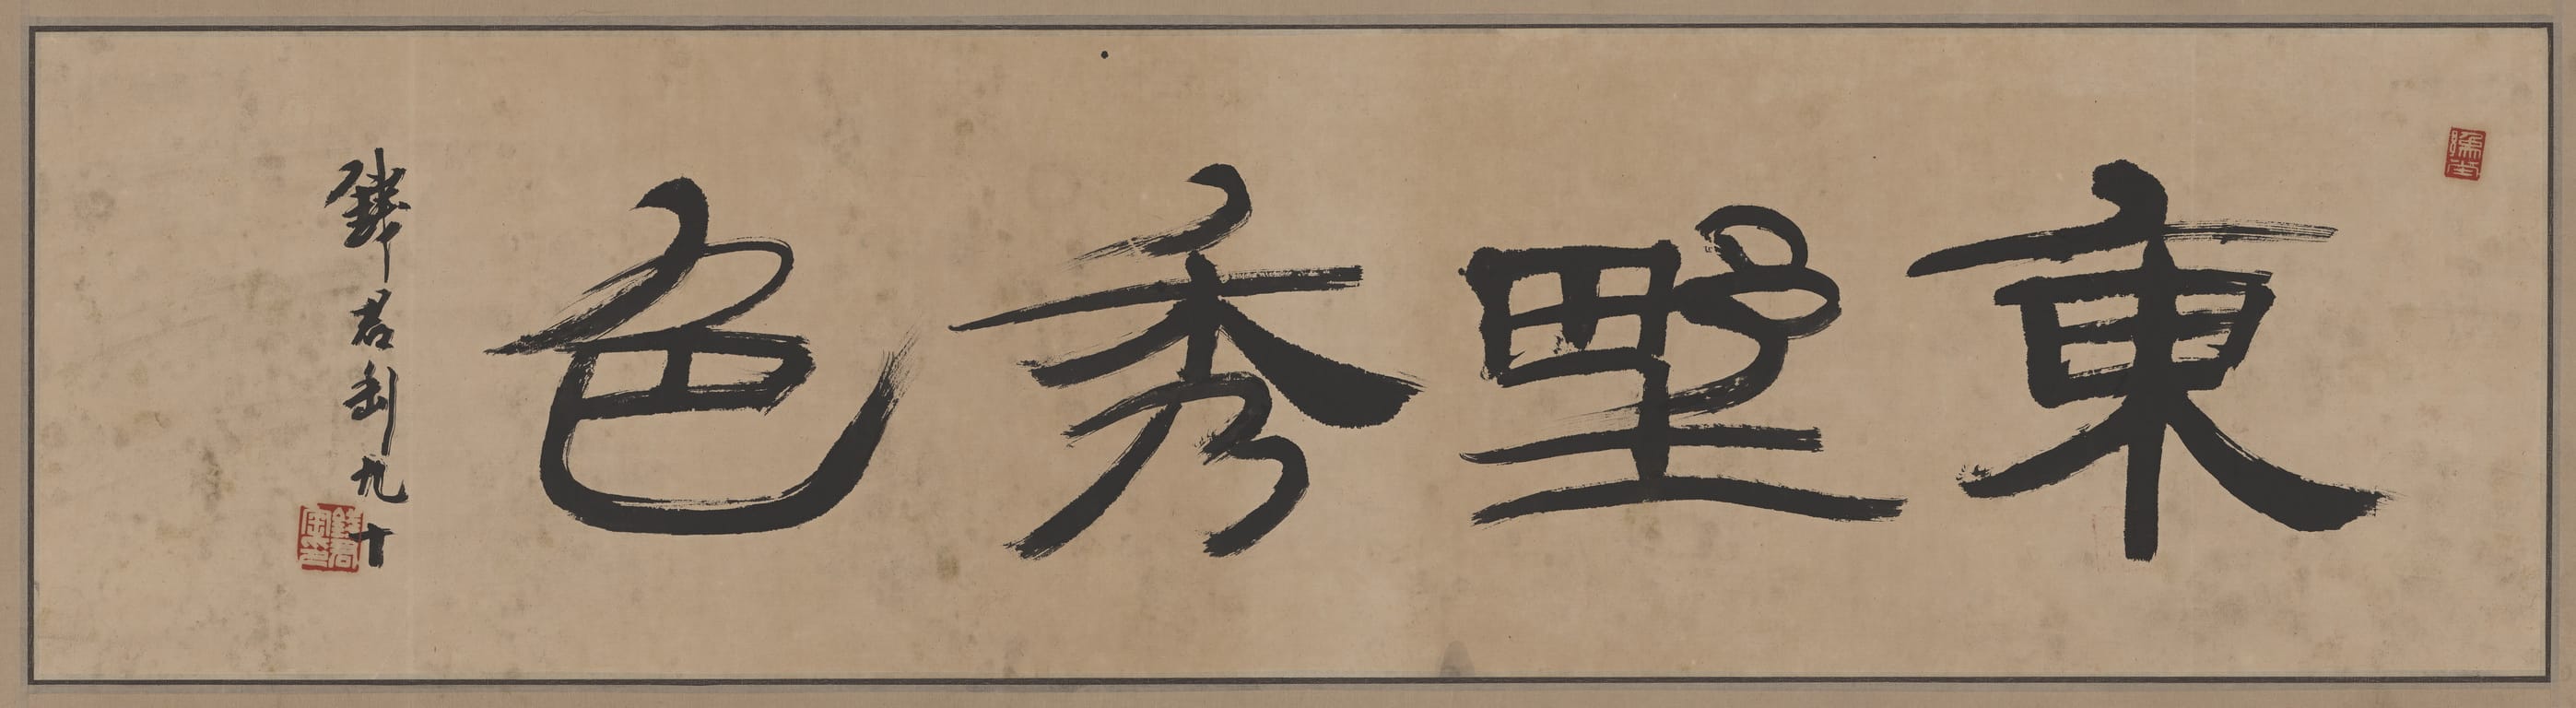 東野秀色
錢君匋九十